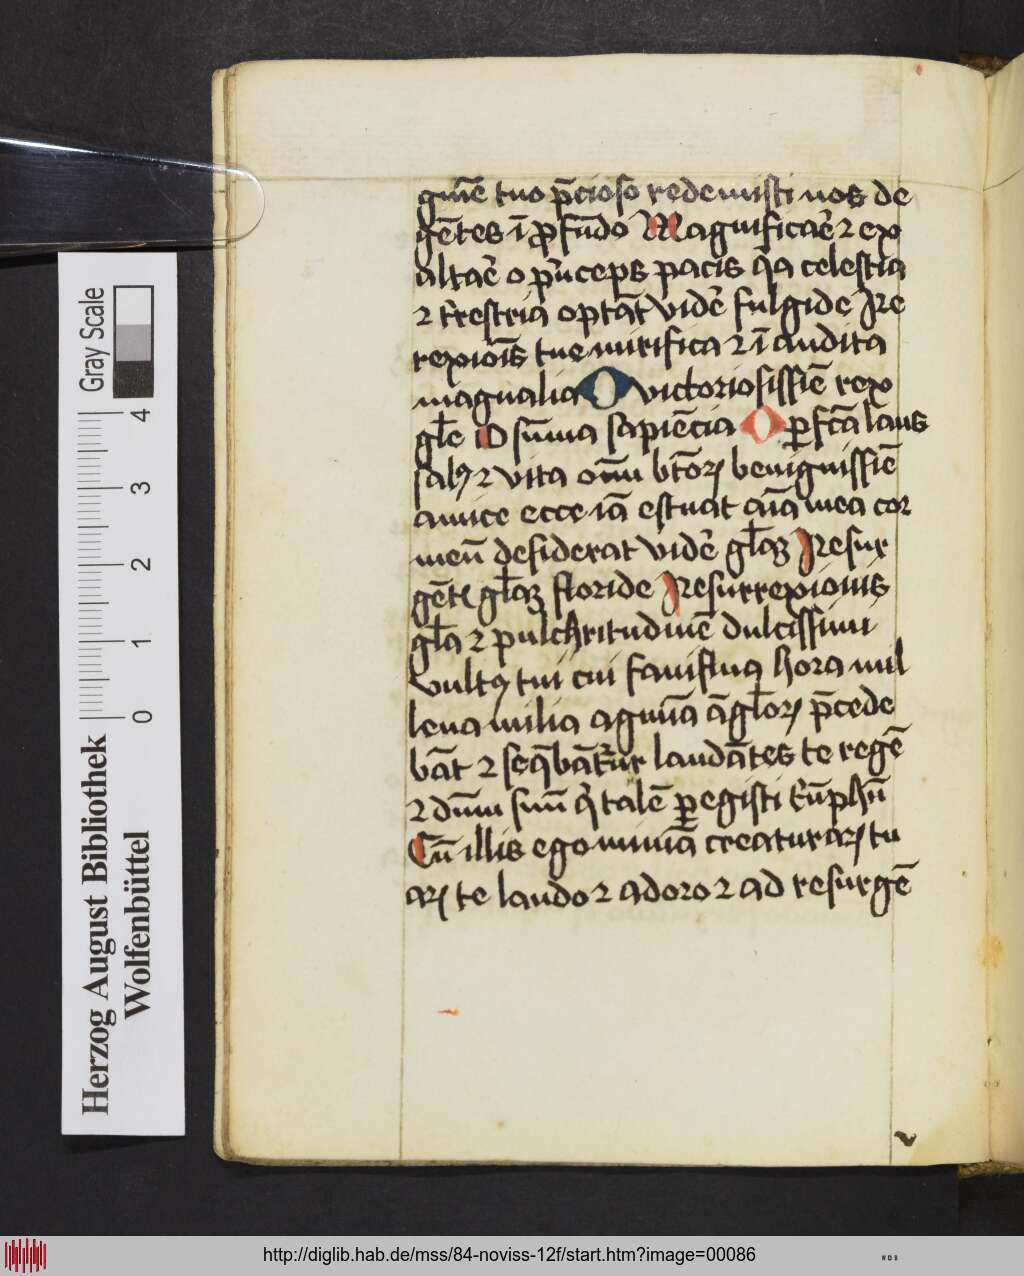 gui̅e tuo p̅cioso redemisti nos de
ge̅tes i̅ ꝓfu̅do Magnificar̉ ⁊ ex
altar̉ o pͥnceps pacis qͣa celestia
⁊ tr̉estria opta̅t vider̉ fulgide Re
rexiois̅ tue mirifica ⁊ i̅ audita
magnalia O victoriosissi̅e rex
gl̅e O su̅ma sapie̅cia O ꝑfc̅a laus
salꝰ ⁊ vita o̅nu bt̅oꝝ benignissi̅e
amice ecce ia̅ estuat ai̅a mea cor
meu̅ desiderat vider̉ gl̅aꝫ Resur
ge̅tꝭ gl̅aꝫ floride Resurrexionis
gl̅a ⁊ pulchritudine̅ dulcissimi
vultꝰ tui cui fauiflua hora mil
lena milia agmi̅a a̅gl̅oꝝ p̅cede
ba̅t ⁊ seq̅ba̅tur lauda̅tes te rege̅
⁊ dn̅m suu̅ qͥ tale̅ ꝑegisti tͥu̅phu̅
Cu̅ illis ego mini̅a creaturaꝝ tu
aꝝ te laudo ⁊ adoro ⁊ ad resurge̅
Gray Scale
4
3
2
1
0
Herzog August Bibliothek
Wolfenbüttel
http://diglib.hab.de/mss/84-noviss-12f/start.htm?image=00086